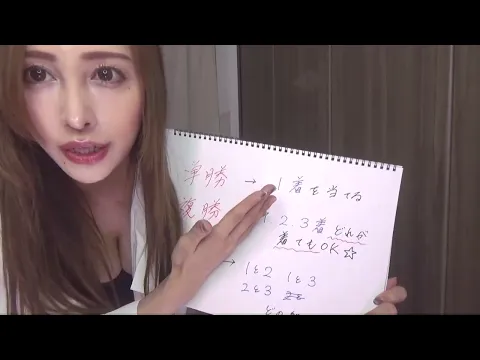 単勝 → 1着を当てる
複勝 2.3着どれか
着てもOK☆
→ 1と2 1と3
2と3